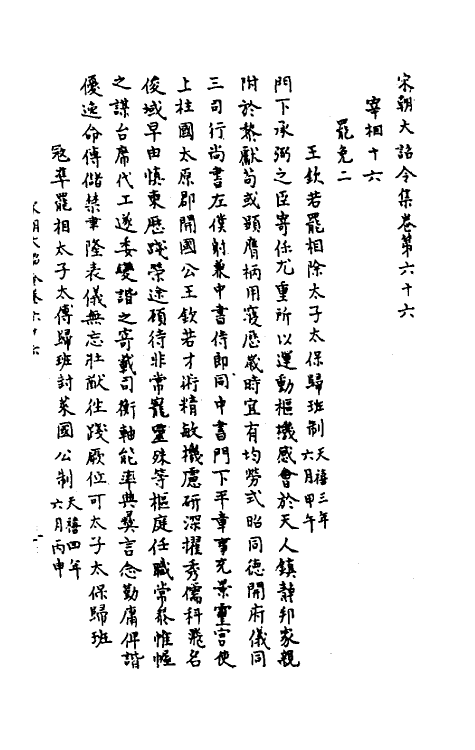 宋朝大詔令集卷第六十六
宰相十六
罷免二
王欽若罷相除太子太保歸班制天禧三年六月甲午
門下承弼之臣寄任尤重所以運動樞機感會於天人鎮靜邦家親
附於黎獻苟或顯膺柄用寖歷歲時宜有均勞式昭同德開府儀同
三司行尚書左僕射兼中書侍郎同中書門下平章事充景靈宮使
上柱國太原郡開國公王欽若才術精敏機慮研深擢秀儒科飛名
俊域早由慎柬歷踐榮途碩待非常寵靈殊等樞庭任職常叅惟幄
之謀台席代工遂委燮諧之寄載司衡軸能率典彝言念勤庸俾諧
優逸命傅儲禁聿隆表儀無忘壯猷徃踐厥位可太子太保歸班
寇準罷相太子太傅歸班討萊國公制天禧四年六月丙申